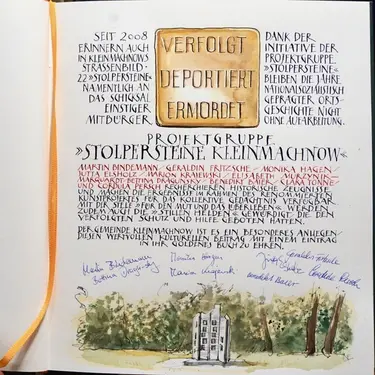 SEIT 2008
ERINNERN AUCH
IN KLEINMACHNOWS
STRASSENBILD
22 »STOLPERSTEINE«
NAMENTLICH AN
DAS SCHICKSAL
EINSTIGER
MITBÜRGER
VERFOLGT
DEPORTIERT
ERMORDET
DANK DER
INITIATIVE DER
PROJEKTGRUPPE
»STOLPERSTEINE«
BLEIBEN DIE JAHRE
NATIONALSOZIALISTISCH
GEPRÄGTER ORTS-
GESCHICHTE NICHT
OHNE AUFARBEITUNG.
PROJEKTGRUPPE
»STOLPERSTEINE KLEINMACHNOW«
MARTIN BINDEMANN · GERALDIN FRITZSCHE · MONIKA HAGEN
JUTTA ELSHOLZ · MARION KRAJEWSKI · ELISABETH MURZYNIK
MARGARDT · BETTINA DRAGUNSKY · BENEDIKT · CLARA TONNE
UND CORDULA PERSCH RECHERCHIEREN HISTORISCHE ZEUGNISSE
UND MACHEN DIE ERGEBNISSE IM RAHMEN DES RENOMMIERTEN
KUNSTPROJEKTES FÜR DAS KOLLEKTIVE GEDÄCHTNIS VERFÜGBAR.
MIT DER STELE »FÜR DEN MUT UND DAS ÜBERLEBEN« WERDEN
ZUDEM AUCH DIE »STILLEN HELDEN« GEWÜRDIGT, DIE DEN
VERFOLGTEN SCHUTZ UND HILFE GEBOTEN HATTEN.
DER GEMEINDE KLEINMACHNOW IST ES EIN BESONDERES ANLIEGEN
DIESEN WERTVOLLEN KULTURELLEN BEITRAG MIT EINEM EINTRAG
IN IHR GOLDENES BUCH ZU EHREN.
Martin Bindemann Monika Hagen
Marion Krajewski